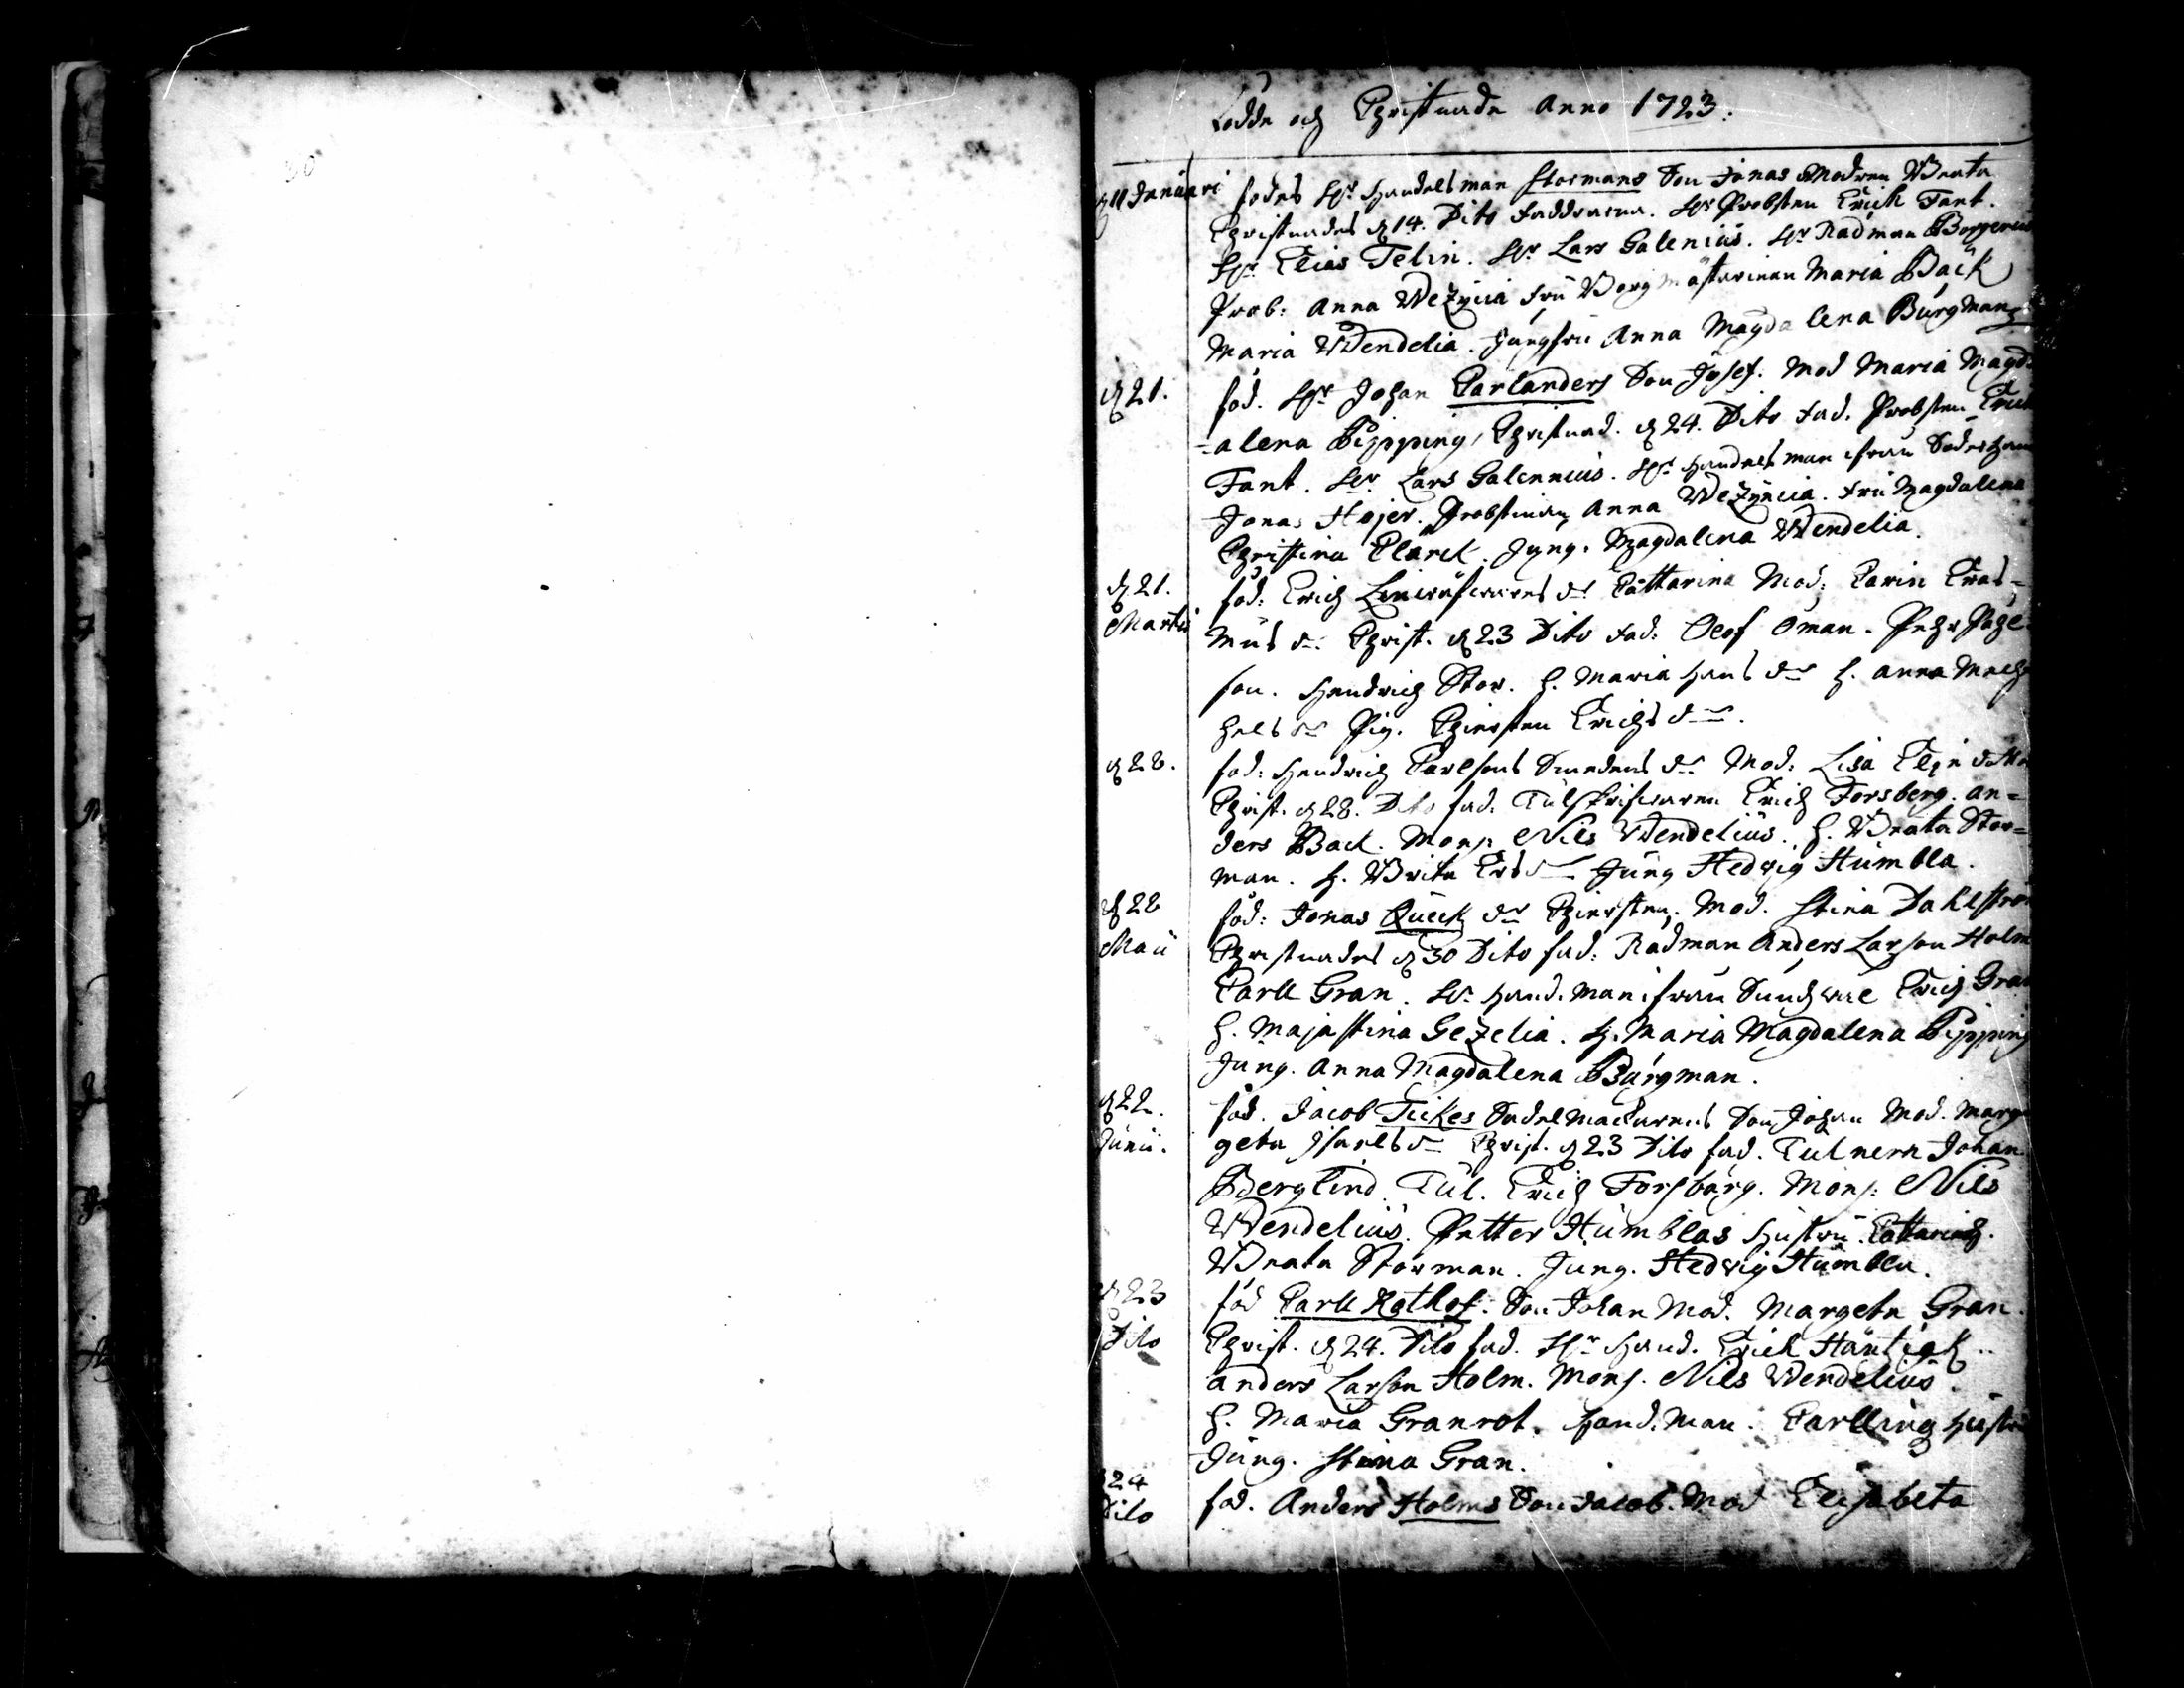 Födde och Christnade Anno 1723.
d 11 Januari föddes Hr Handelsman Stormans Son Jonas Modren Beata
Christnades d 14. Dito faddrarna. Hr Probsten Erick Fant.
Hr Elias Telin. Hr Lars Galenius. Hr Rådman
Prob: Anna Wezynia fru Borgmästarinnan Maria Bäck
Maria Wendelia. Jungfru Anna Magdalena Burgman
d 21. föd. Hr Johan Carlanders Son Josef. Mod Maria Magd
=alena Bipping, Christnad. d 24. Dito fad. Probsten Erick
Fant. Hr Lars Galennius. Hr Handelsman ifrån Söderham
Jonas Höjer. Probstinnan Anna Wezyncia. fru Magdalena
Christina Clarck. Jung. Magdalena Wendelia.
d 21. Martii föd: Erich dr Cattarina Mod: Carin Eras=
mus dr Christ. d 23 Dito fad: Olof Öman. Pehr Påhl
son. Hendrich Stor. h. Maria Hans dr h. Anna Mich
hels dr Pig. Chiersten Erichs dr.
d 28. föd: Hendrich Carlsons Smedens dr Mod: Lisa
Christ. d 28. Dito fad. Tulskrifvaren Erich Forsberg. An=
ders Back. Mons: Nils Wendelius. h. Beata Stor=
man. h. Brita Ers dr Jung Hedvig Humbla.
d 28 Maii föd: Jonas Queck dr Chiersten. Mod. Stina Dahlström
Christnades d 30 Dito fad: Rådman Anders Larson Holm
Carll Gran. Hr Hand. man ifrån Sundzval Erich Gran
h. Majastina Gezelia. h. Maria Magdalena Bipping
Jung. Anna Magdalena Burgman.
d 22. Junii. föd. Jacob Tickes Sadelmackarens Son Johan Mod. Marg
geta Israels dr Christ. d 23 Dito fad. Tulneren Johan
Berglind. Tul. Erich Forsbärg. Mons: Nils
Wendelius. Petter Humblas Hustru. Cattarina.
Beata Storman. Jung. Hedvig Humbla.
d 23 Dito föd Carll Rothof. Son Johan Mod. Margeta Gran.
Christ. d 24. Dito fad. Hr Hand. Erick
Anders Larson Holm. Mons. Nils Wendelius.
h. Maria Granrot. Hand. man. Carlling Hustru
Jung. Stina Gran.
24 Dito föd. Anders Holms Son Jacob. Mod Elisabeta